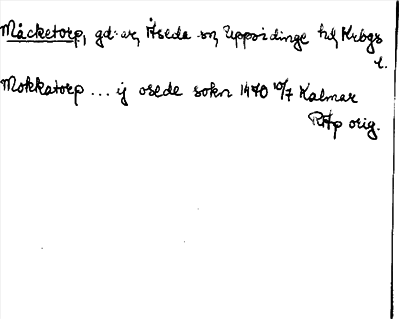 Måcketorp, gd: ar, Åseda sn, Uppvidinge hd, Krbgs
l.
Mokkatorp ... ij osede sokn 1470 10/7 Kalmar
RAp orig.